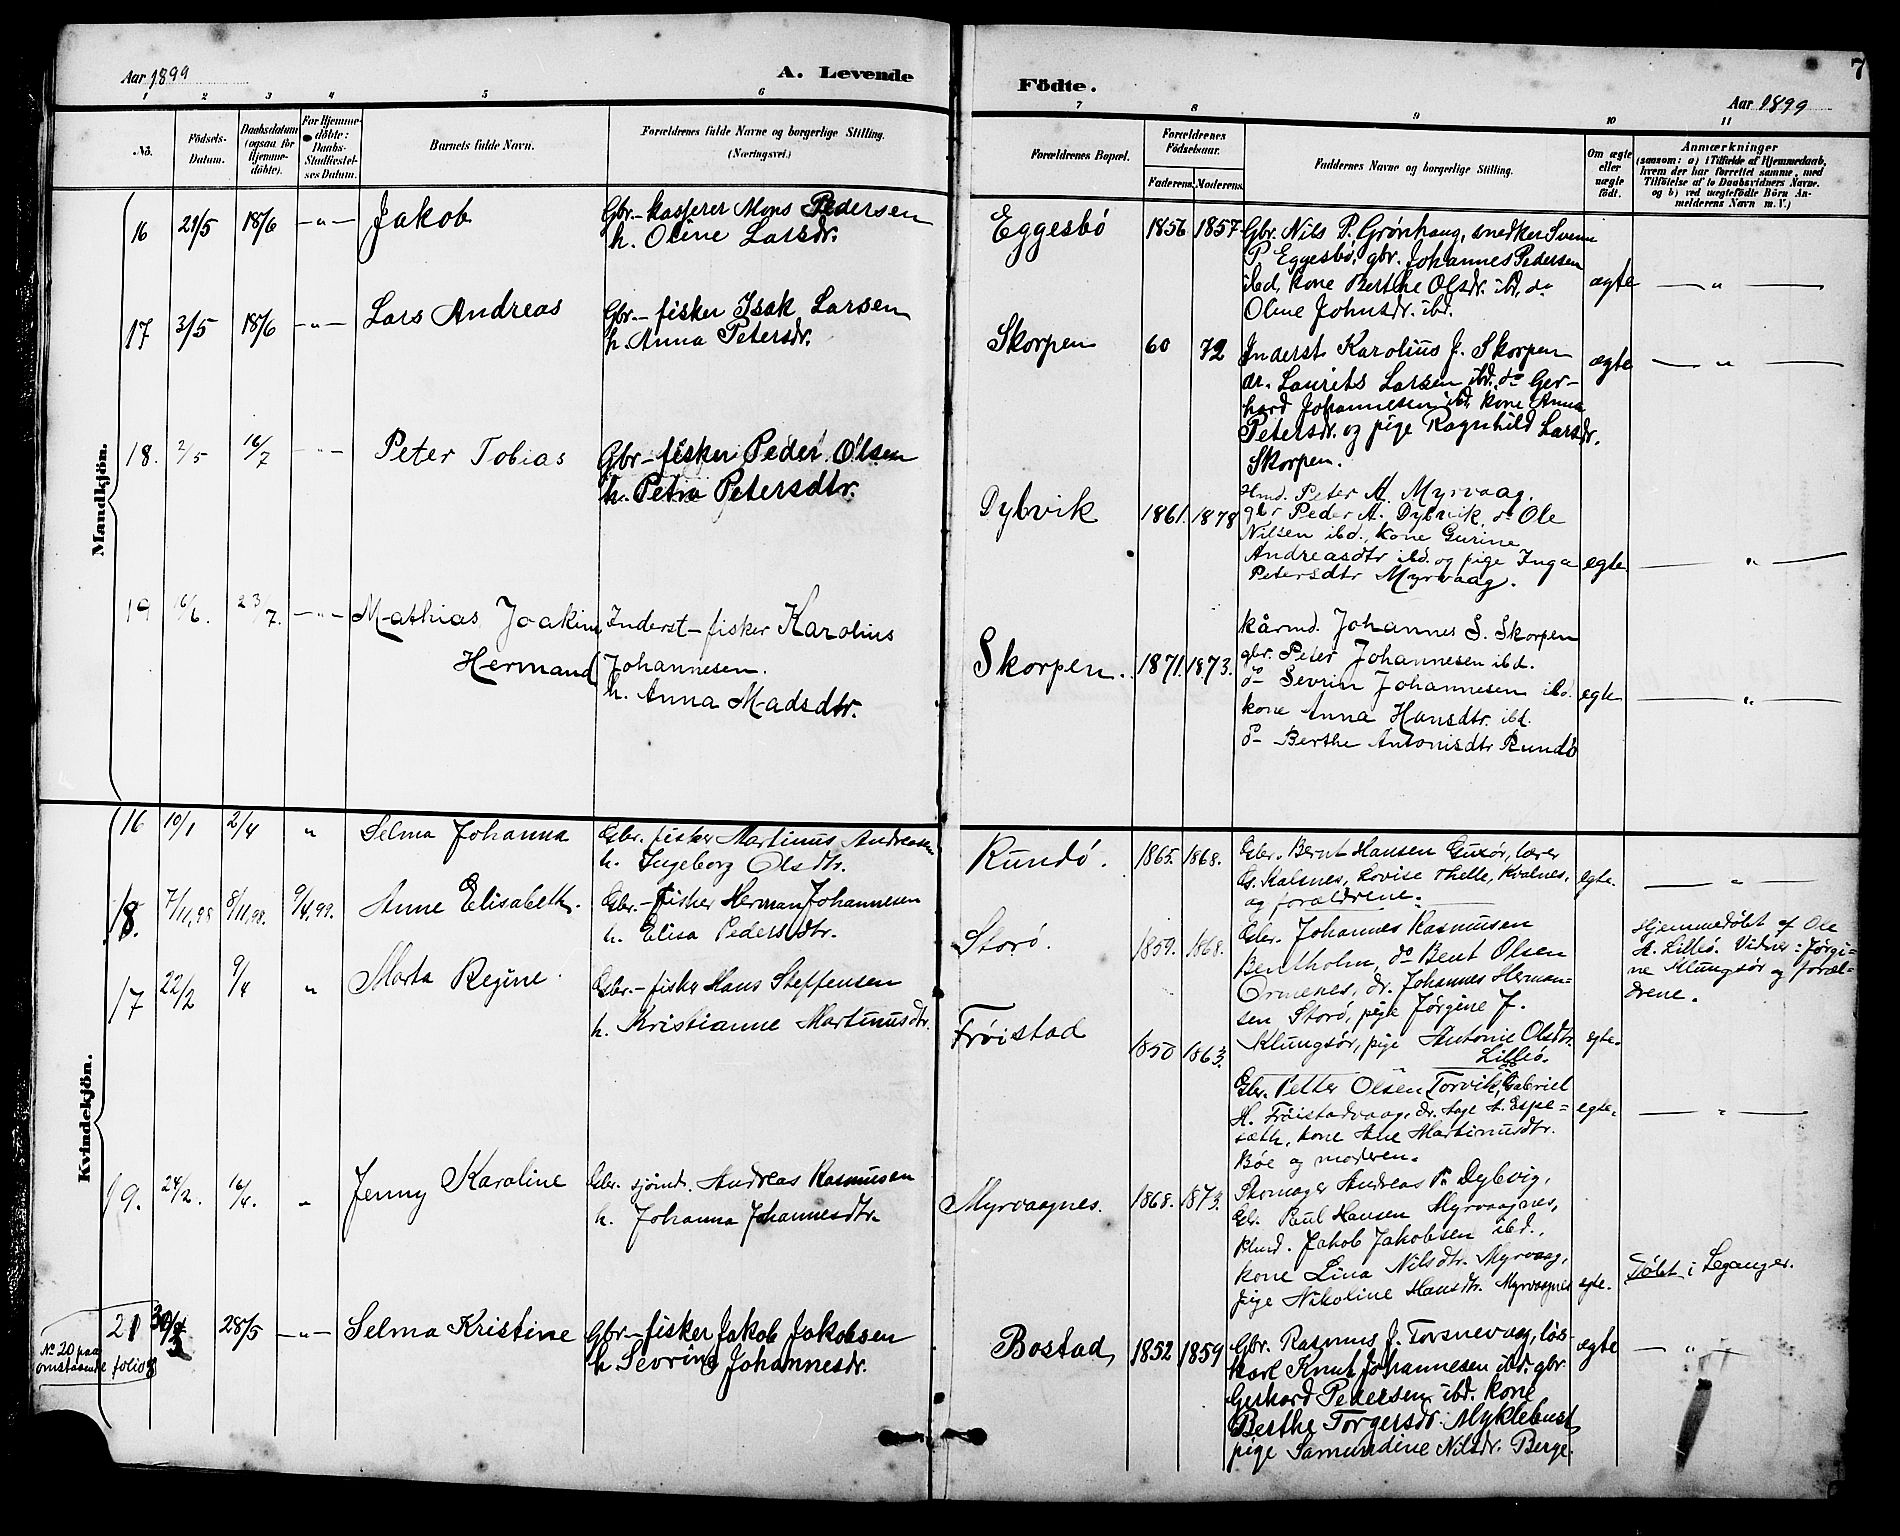 Aar 1899
A. Levende
Födte.
7
Aar 1899
1
2
3
4
5
6
7
8
9
10
11
No.
Födsels-
Datum.
Daabsdatum
(ogsaa for
Hjemme-
döbte).
For Hjemme-
döbte:
Daabs-
Stadfæstel-
ses Datum.
Barnets fulde Navn.
Forældrenes fulde Navne og borgerlige Stilling.
(Næringsvei.)
Forældrenes Bopæl.
Forældrenes
Födselsaar.
Faderens. Moderens.
Faddernes Navne og borgerlige Stilling.
Om ægte
eller
uægte
født.
Anmærkninger
(saasom: a) i Tilfælde af Hjemmedaab,
hvem der har forrettet samme, med
Tilföielse af to Daabsvidners Navne.
og b) ved uægtefödte Börn An-
melderens Navn m. V.)
Mandkjön.
16
21/5
18/6
— „ —
Jakob
Gbr.-kasserer Mons Pedersen
h. Oline Larsdr.
Eggesbö
1856 1857
Gbr. Nils P. Grønhaug, snedker Svenn
P. Eggesbö, gbr. Johannes Pedersen
ibd, kone Berthe Olsdr. ibd, do
Oline Johnsdr. ibd.
ægte
— „ —
17
3/5
18/6
— „ —
Lars Andreas
Gbr.- fisker Isak Larsen
h. Anna Petersdr.
Skorpen
60 72
Inderst Karolius J. Skorpen
dr. Laurits Larsen ibd. do Ger-
hard Johannesen ibd, kone Anna
Petersdr. og pige Ragnhild Larsdr.
Skorpen.
ægte
— „ —
18.
2/5
16/7
— „ —
Peter Tobias
Gbr-fisker Peder Olsen
h. Petra Petersdtr.
Dybvik
1861. 1878
Hmd. Peter A. Myrvaag.
gbr Peder A. Dybvik, do Ole
Nilsen ibd., kone Gurine
Andreasdtr ibd. og pige Inga
Petersdtr Myrvaag.
egte
— „ —
19
16/6.
23/7.
— „ —
Mathias Joakim
Hermand
Inderst-fisker Karolius
Johannesen.
h. Anna Madsdtr.
Skorpen.
1871. 1873.
kårmd. Johannes S. Skorpen
gbr. Peter Johannesen ibd.
do Sevrin Johannesen ibd.
kone Anna Hansdtr. ibd.
do Berthe Antonisdtr Rundö
egte
— „ —
Kvindekjön.
16
10/1
2/4
„
Selma Johanna
Gbr. fisker Martinus Andreasen
h. Ingeborg Olsdtr.
Rundö.
1865. 1868.
Gbr. Bernt Hansen Guxör, lærer
Lovise Thelle, Kvalnes,
og forældrene.
egte.
— „ —
18.
7/11,98
8/11,98.
9/4,99.
Anne Elisabeth.
Gbr.- fisker Herman Johannesen
h. Elisa Pedersdtr.
Storö.
1859. 1868.
Gbr. Johannes Rasmusen
Bentholm, do Bent Olsen
Ormenes, dr. Johannes Herman-
sen Storö, pige Jörgine J.
Klungsör, pige Antonie Olsdtr.
Lillöö.
egte.
Hjemmedöbt af Ole
A. Lilleö. Vidner: Jörgi-
ne Klungsör og foræl-
drene.
17
22/2
9/4
„
Marta Regine.
Gbr.-fisker Hans Steffensen
h. Kristianne Martinusdtr.
Fröistad
1850 1863.
Gbr. Petter Olsen Torvik, Gabriel
H. Fröistadvaag, dr. Aage A. Espe-
sæth, kone Ane Martinusdtr.
Böe og moderen.
egte.
— „ —
19.
24/2.
16/4.
„
Jenny Karoline
Gbr. sjömd. Andreas Rasmusen
h. Johanna Johannesdtr.
Myrvaagnes.
1868. 1873.
Skomager Andreas P. Dybvig,
Gbr. Paul Hansen Myrvaagnes,
Jakob Jakobsen ibd.,
kone Lina Nilsdtr. Myrvaag,
pige Nikoline Hansdtr. Myrvaagnes
egte.
Döbt i Leganger.
21
28/5
— „ —
Selma Kristine
Gbr- fisker Jakob Jakobsen
h Sevrine Johannesdr.
No 20 paa
omstaaende folio 8
Bostad,
1852 1859
Gbr. Rasmus J. Torsnevaag, løs-
karl Knut Johannesen ibd. gbr.
Gerhard Pedersen ibd. kone
Berthe Torgersdr. Myklebust
pige Samundine Nilsdr. Berge.
ægte
— „ —